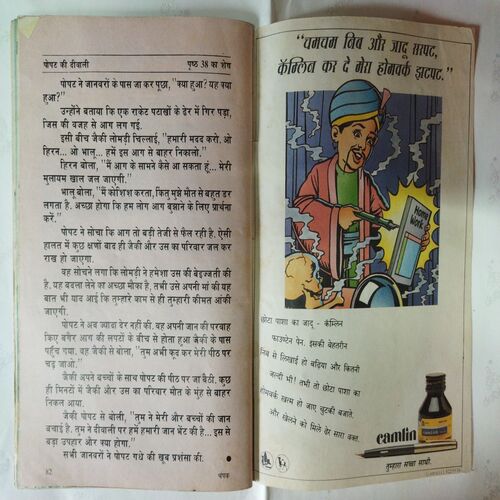 पोपट की दीवाली पृष्ठ 38 का शेष
पोपट ने जानवरों के पास जा कर पूछा, "क्या हुआ? यह क्या
हुआ?"
उन्होंने बताया कि एक राकेट पटाखों के ढेर में गिर पड़ा,
जिस की वजह से आग लग गई.
इसी बीच जैकी लोमड़ी चिल्लाई, "हमारी मदद करो. ओ
हिरन... ओ भालू... हमें इस आग से बाहर निकालो."
हिरन बोला, "मैं आग के सामने कैसे आ सकता हूं... मेरी
मुलायम खाल जल जाएगी."
भालू बोला, "मैं कोशिश करता, किंतु मुझे मौत से बहुत डर
लगता है. अच्छा होगा कि हम लोग आग बुझाने के लिए प्रार्थना
करें."
पोपट ने सोचा कि आग तो बड़ी तेजी से फैल रही है. ऐसी
हालत में कुछ क्षणों बाद ही जैकी और उस का परिवार जल कर
राख हो जाएगा.
वह सोचने लगा कि लोमड़ी ने हमेशा उस की बेइज्जती की
है. यह बदला लेने का अच्छा मौका है, तभी उसे अपनी मां की वह
बात भी याद आई कि तुम्हारे काम से ही तुम्हारी कीमत आंकी
जाएगी.
पोपट ने अब ज्यादा देर नहीं की. वह अपनी जान की परवाह
किए बगैर आग की लपटों के बीच से होता हुआ जैकी के पास
पहुंच गया. वह जैकी से बोला, "तुम अभी कूद कर मेरी पीठ पर
चढ़ जाओ."
जैकी अपने बच्चों के साथ पोपट की पीठ पर जा बैठी. कुछ
ही मिनटों में जैकी और उस का परिवार मौत के मुंह से बाहर
निकल आया.
जैकी पोपट से बोली, "तुम ने मेरी और बच्चों की जान
बचाई है. तुम ने दीवाली पर हमें हमारी जान भेंट की है... इस से
बड़ा उपहार और क्या होगा."
सभी जानवरों ने पोपट गधे की खूब प्रशंसा की.
82 चंपक
"चमचम निब और जादू सरपट,
कॅम्लिन कर दे मेरा होमवर्क झटपट."
Home
Work
छोटा पाशा का जादू - कॅम्लिन
फाउण्टेन पेन. इसकी बेहतरीन
निब से लिखाई हो बढ़िया और कितनी
जल्दी भी! तभी तो छोटा पाशा का
होमवर्क खत्म हो जाए चुटकी बजाते.
और खेलने को मिले ढेर सारा वक्त.
camlin
तुम्हारा सच्चा साथी.